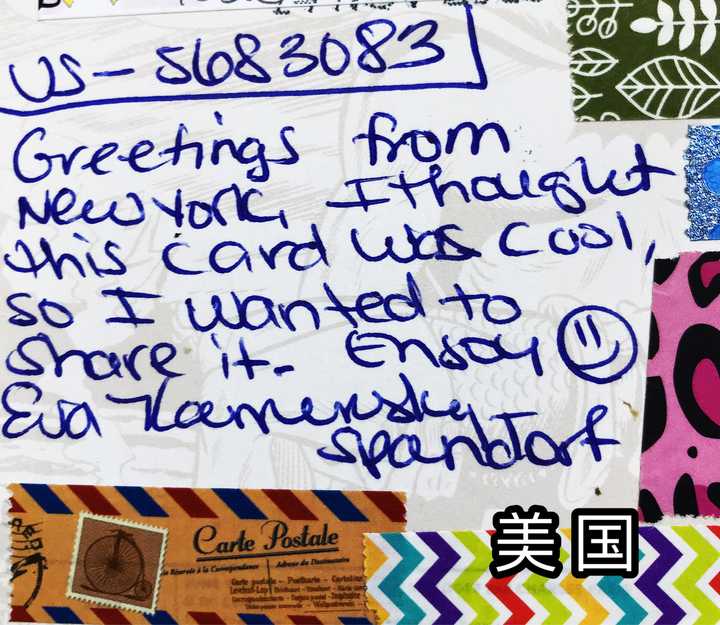 US-5683083
Greetings from
New York, I thought
this card was cool,
so I wanted to
share it. Enjoy
Eva Kamensky
Spandorf
Carte Postale
美国